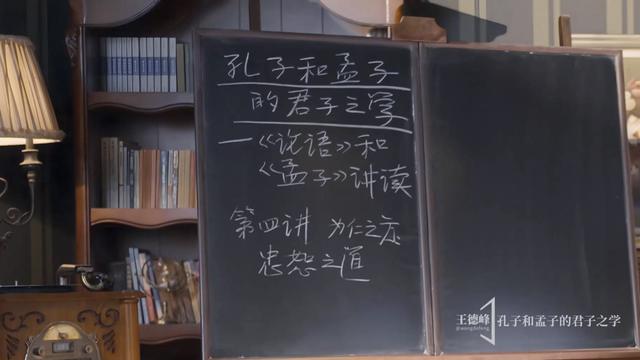 孔子和孟子
的君子之学
—《论语》和
《孟子》讲读
第四讲 为仁之方
忠恕之道
王德峰
@wangdefeng
孔子和孟子的君子之学